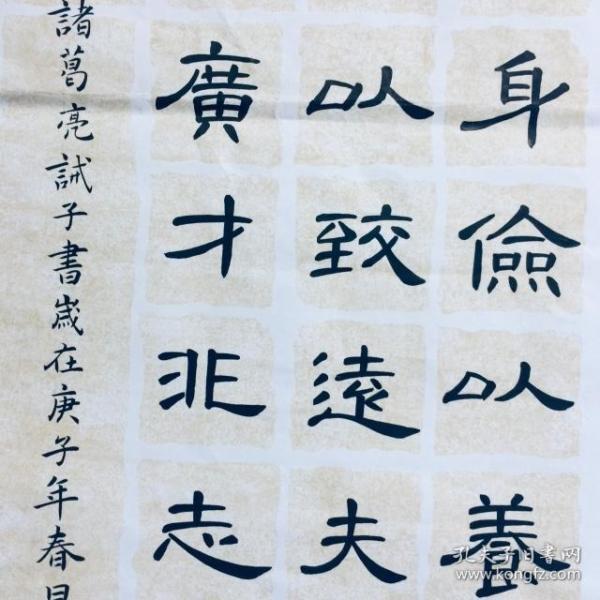 身儉以養
以致遠夫
廣才非志
諸葛亮誡子書歲在庚子年春月
孔夫子旧书网
www.kongfz.com